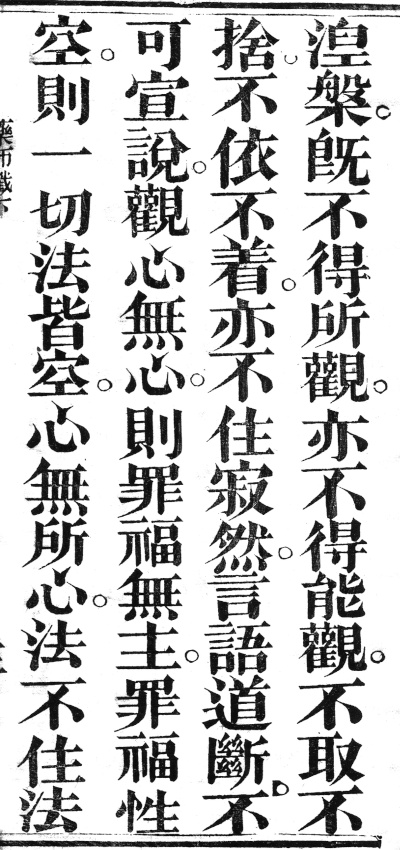 湼槃。旣不得所觀。亦不得能觀。不取不
捨。不依不着。亦不住寂然。言語道斷。不
可宣說。觀心無心。則罪福無主。罪福性
空。則一切法皆空。心無所心。法不住法